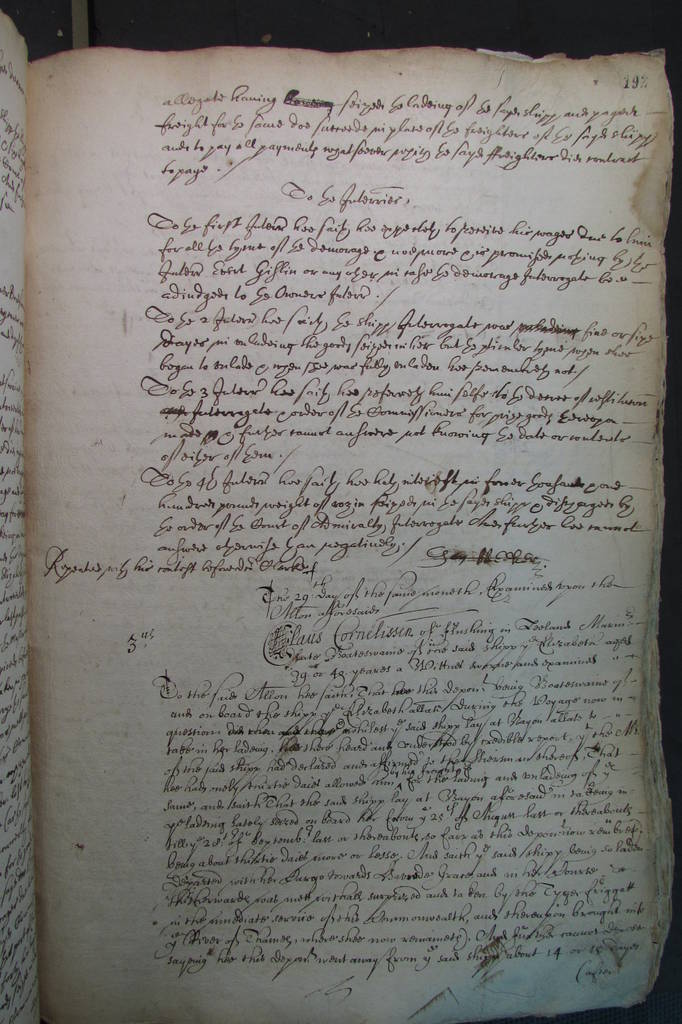 197
allegate having seized the ladeing of the sayd shipp and payed
freight for the same doe succeede in place of the freighters of the sayd shipp
and to pay all payments whatsoever which the sayd ffreighters did contract
to paye.
To the Interries,
To the first Interr hee saith hee expecteth to receive his wages due to him
for all the tyme of the demorage & noe more & is promised nothing by the
Interr or any other in case the demorage Interrogate be
adiudged to the Owners Interr./
To the 2 Interr hee saith the shipp Interrogate was five or sixe
dayes in unladeing the goods seized in her but the pticuler tyme when shee
began to unlade & when shee was fully unladen hee remembreth not/
To the 3 Interr hee saith hee referreth himselfe to the decree of restitucon
Interrogate & order of the Commissioners for prize goods thereupon
made & further cannot answere not knowing the date or contents
of either of them./
To the 4th Interr hee saith
hundred pounds weight of in the sayd shipp & by
the order of the Court of Admiralty Interrogate And further hee cannot
answere otherwise than negatively./
Repeated with his contest before
The 29th day of the same moneth. Examined upon the
Allon aforesaid
3us
Claus Cornelissen of fflushing in Zeeland Marinr
late Boatswaine of the said shipp ye Elizabeth aged
39 or 40 yeares a Wittnes sworne and examined
To the said Allon hee saith, That hee this deponт being Boateswaine of
and on board the shipp ye Elizabeth allate during the Voyage now in
question did whilest ye said shipp lay at Bayon allate to
take in her ladeing, there heard and understood by credible report, ye the Mr
of the said shipp had declared and affirmed to the Steersman thereof, That
hee had only thirtie daies allowed him by his for the lading and unladeing of ye
same, and saith That the said shipp lay at Bayon aforesaid in takeing in
ye ladeing lately seized on board her from ye 25th of August last or thereabouts
till ye 28th of Septembr last or thereabouts, so farr as this deponт now remembreth,
being about thirtie daies more or lesse, And saith ye said shipp being so laden
departed with her Cargo towards Havre de Grace, and in her Course
thitherwards was mett withall surprized and taken by the Tyger ffriggatt
in the immediate service of this Commonwealth, and thereupon brought into
ye River of Thames, where shee now remaineth. And further cannot depose
sayeing hee this deponт went away from ye said shipp about 14 or 15 dayes